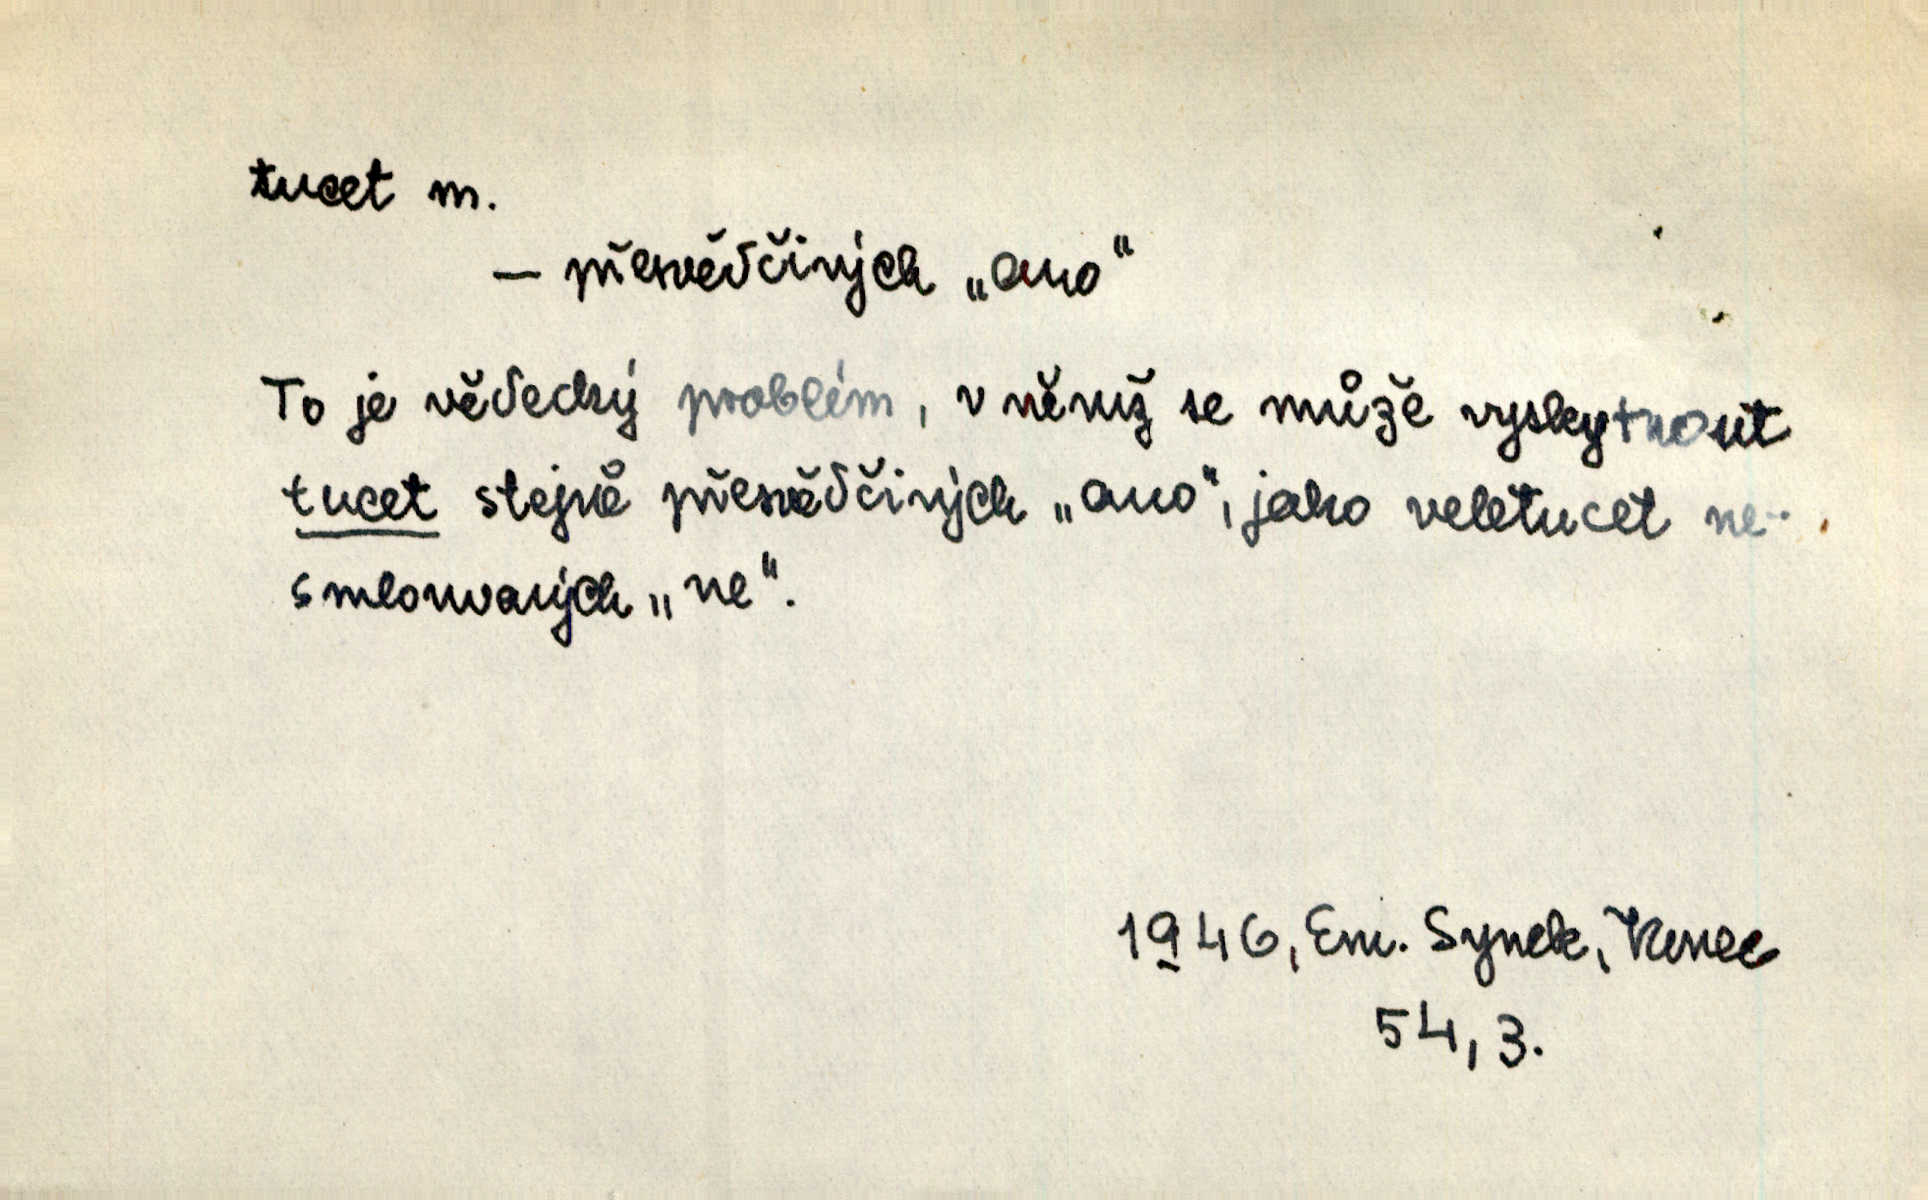 tucet m.
— přesvědčivých „ano“
To je vědecký problém, v němž se může vyskytnout
tucet stejně přesvědčivých „ano“, jako veletucet ne-
smlouvavých „ne“.
1946, Em. Synek,
54, 3.